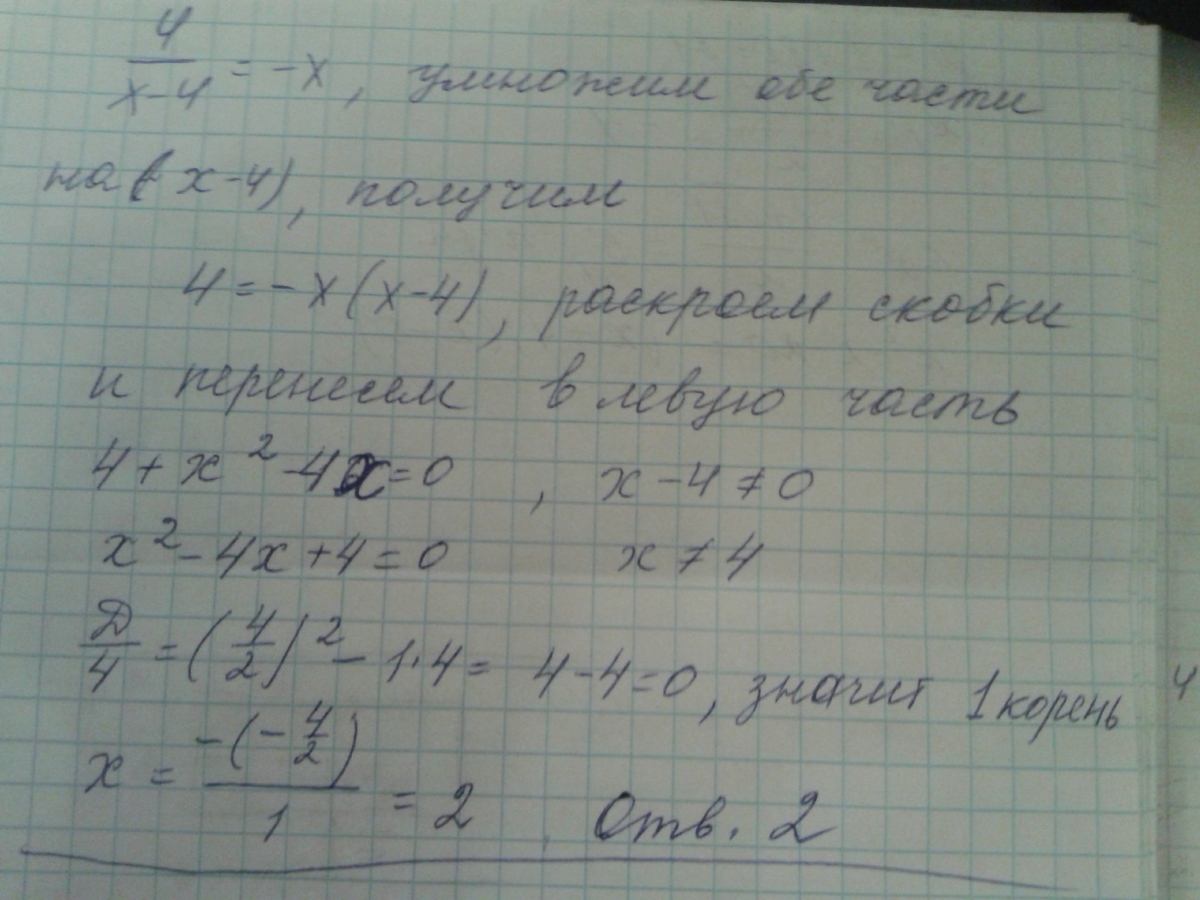 4/(x-4) = -x, умножим обе части
на (x-4), получим
4 = -x(x-4), раскроем скобки
и перенесем в левую часть
4 + x² - 4x = 0 , x - 4 ≠ 0
x² - 4x + 4 = 0 x ≠ 4
Д/4 = (4/2)² - 1·4 = 4 - 4 = 0, значит 1 корень
x = -(-4/2)/1 = 2 Отв. 2
4